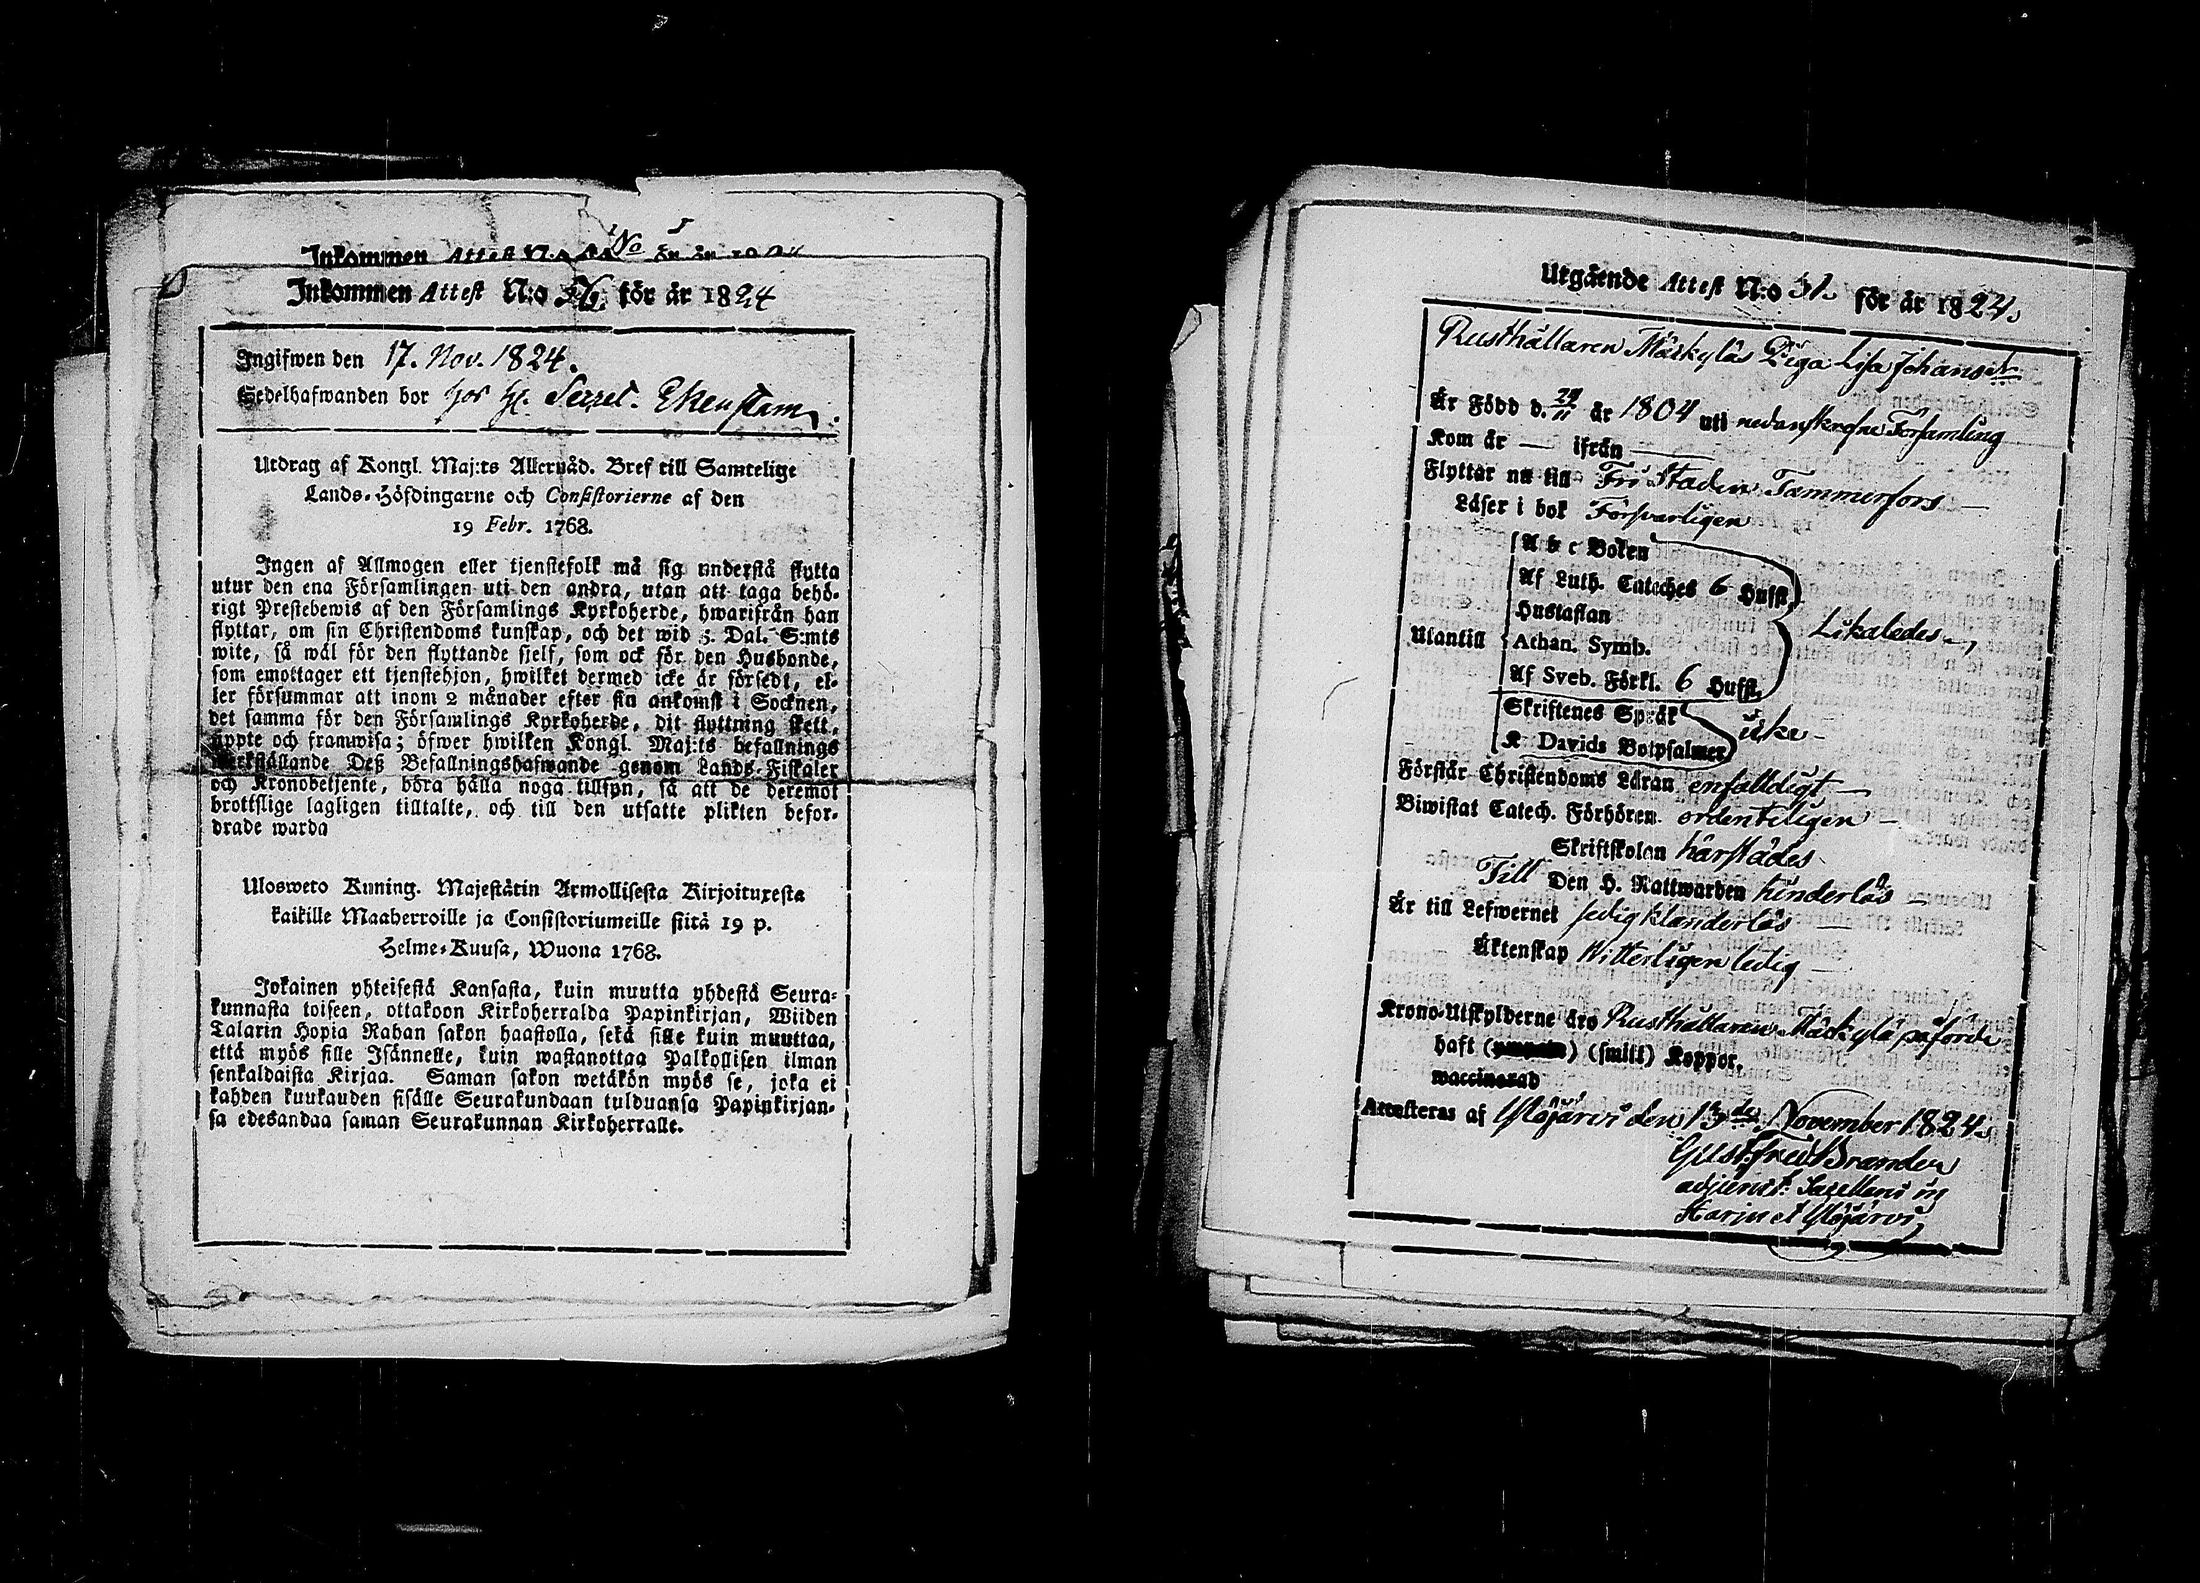 Inkommen Attest N:o
No 5
Inkommen Attest N:o 56. för år 1824
Ingifwen den 17. Nov. 1824.
Sedelhafwanden bor hos H. Secret. Ekenstam.
Utdrag af Kongl. Maj:ts Allernåd. Bref till Samtelige
Lands-Höfdingarne och Consistorierne af den
19 Febr. 1768.
Ingen af Allmogen eller tjenstefolk må sig understå flytta
utur den ena Församlingen uti den andra, utan att taga behö-
rigt Prestebewis af den Församlings Kyrkoherde, hwarifrån han
flyttar, om sin Christendoms kunskap, och det wid 5. Dal. S:mts
wite, så wäl för den flyttande sjelf, som ock för den Husbonde,
som emottager ett tjenstehjon, hwilket dermed icke är försedt, el-
ler försummar att inom 2 månader efter sin ankomst i Socknen,
det samma för den Församlings Kyrkoherde, dit flyttning skett,
uppte och framwisa; öfwer hwilken Kongl. Maj:ts befallnings
werkställande Deß Befallningshafwande genom Lands-Fiskaler
och Kronobetjente, böra hålla noga tillsyn, så att de deremot
brottslige lagligen tilltalte, och till den utsatte plikten befor-
drade warda
Ulosweto Kuning. Majestätin Armollisesta Kirjoituxesta
kaikille Maaherroille ja Consistoriumeille siitä 19 p.
Helme-Kuusa, Wuona 1768.
Jokainen yhteisestä Kansasta, kuin muutta yhdestä Seura-
kunnasta toiseen, ottakoon Kirkoherralda Papinkirjan, Wiiden
Talarin Hopia Rahan sakon haastolla, sekä sille kuin muuttaa,
että myös sille Isännelle, kuin wastanottaa Palkollisen ilman
senkaldaista Kirjaa. Saman sakon wetäkön myös se, joka ei
kahden kuukauden sisälle Seurakundaan tulduansa Papinkirjan-
sa edesandaa saman Seurakunnan Kirkoherralle.
Utgående Attest N:o 51. för år 1824.
Rusthållaren Märkyläs Piga Lisa Johansdt
Är Född d. 29/11 år 1804 uti nedanskrefne Församling
Kom år — ifrån —
Flyttar nu till Fri Staden Tammerfors —
Läser i bok Försvarligen
A b c Boken
Af Luth. Cateches 6 Hufst.
Hustaflan
Utantill Athan. Symb. Likaledes —
Af Sveb. Förkl. 6 Hufst.
Skriftenes Språk
K Davids Botpsalmer icke —
Förstår Christendoms Läran enfalldigt —
Biwistat Catech. Förhören ordenteligen —
Skriftskolan härstädes
Till Den H. Nattwarden hinderlös —
Är till Lefwernet sedig klanderlös —
Äktenskap Witterligen ledig —
Krono-Utskylderne äro Rusthållaren Märkylä påförde
haft (ympade) (smitt) Koppor,
waccinerad
Attesteras af Ylöjärvi den 13de November 1824.
Gust. Fred Brander
adjunct: Sacellans in
Harju et Ylöjärvi